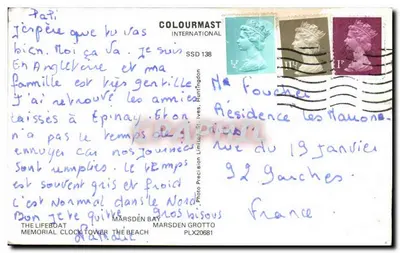 COLOURMAST
INTERNATIONAL
SSD 138
J'espère que tu vas
bien. Moi ça va. Je suis
En Angleterre et ma
famille est très gentille.
J'ai retrouvé les amies
laissées à Epinay. Et on
n'a pas le temps de s'
ennuyer car nos journées
sont remplies. Le temps
est souvent gris et froid
c'est Normal dans le Nord
Bon je te quitte, gros bisous
THE LIFEBOAT
MARSDEN BAY
MARSDEN GROTTO
MEMORIAL CLOCK TOWER THE BEACH
PLX20681
Photo Precision Limited, St. Ives, Huntingdon
Foucher
Résidence les
rue du 19 Janvier
92 Garches
France
½P
1P